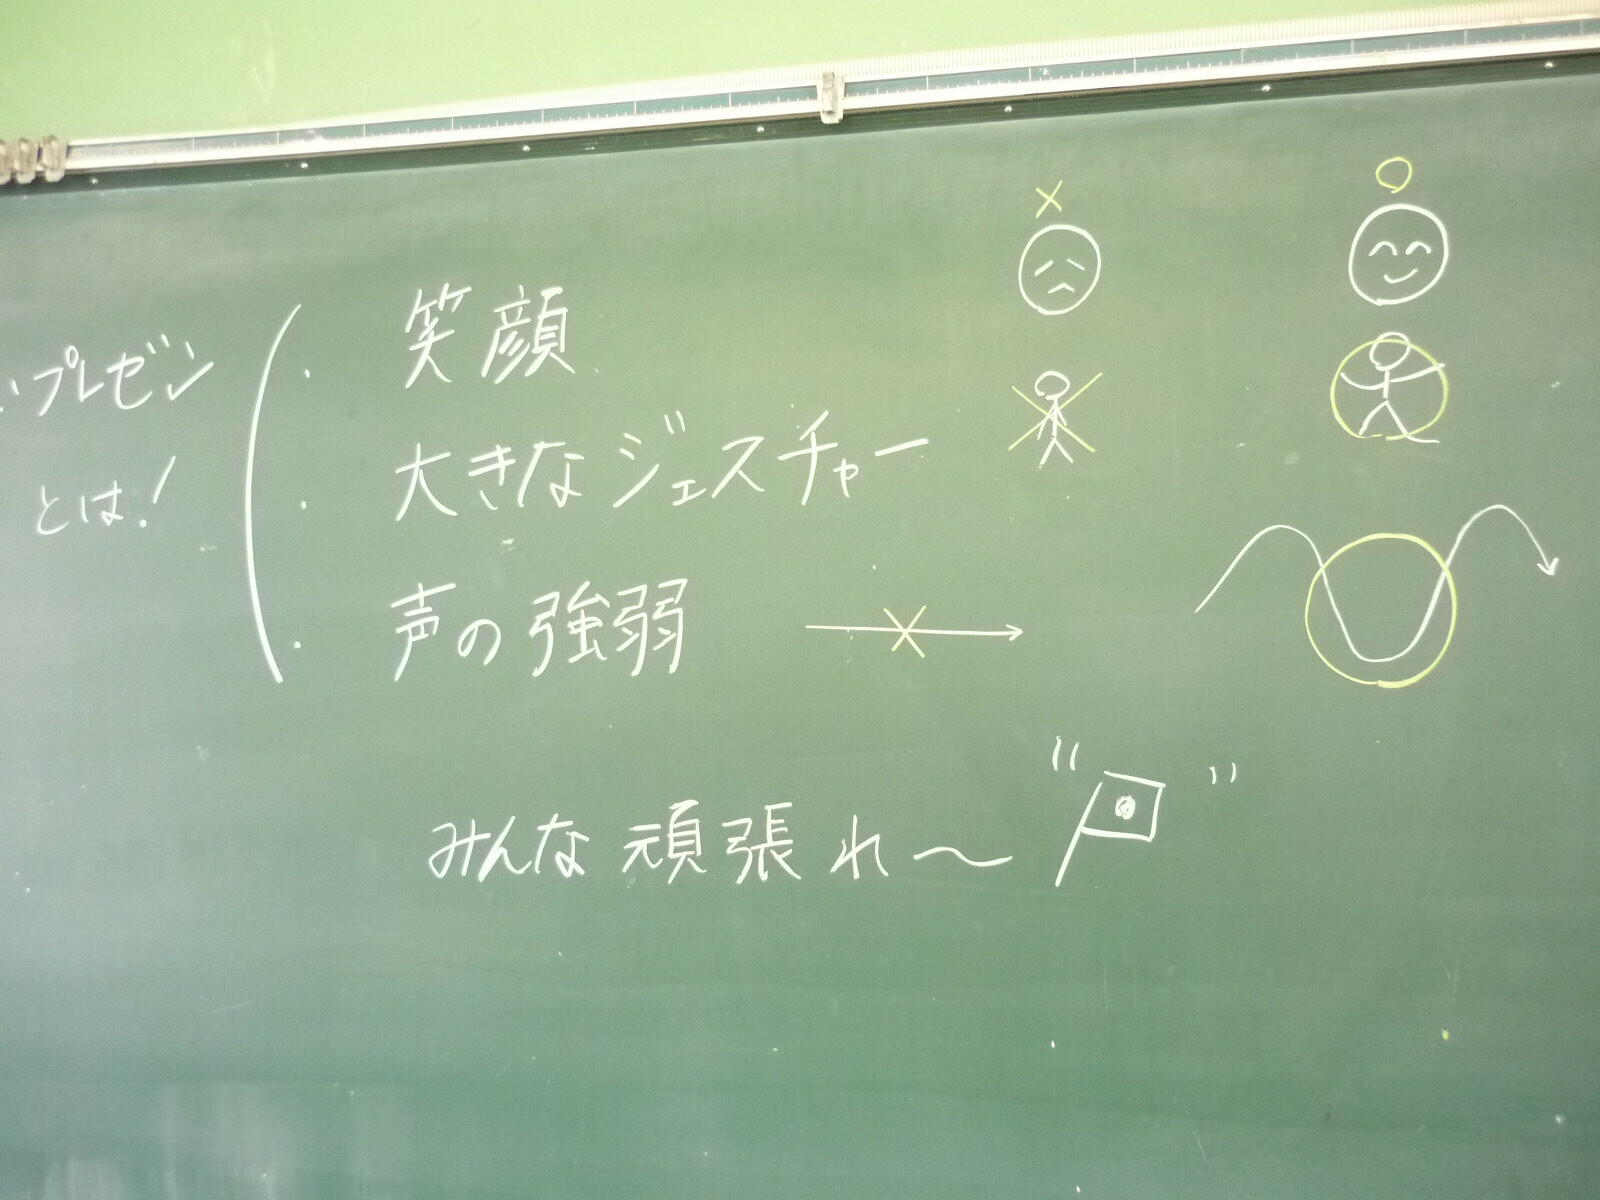 いプレゼン
とは！
・笑顔
・大きなジェスチャー
・声の強弱
みんな頑張れ〜